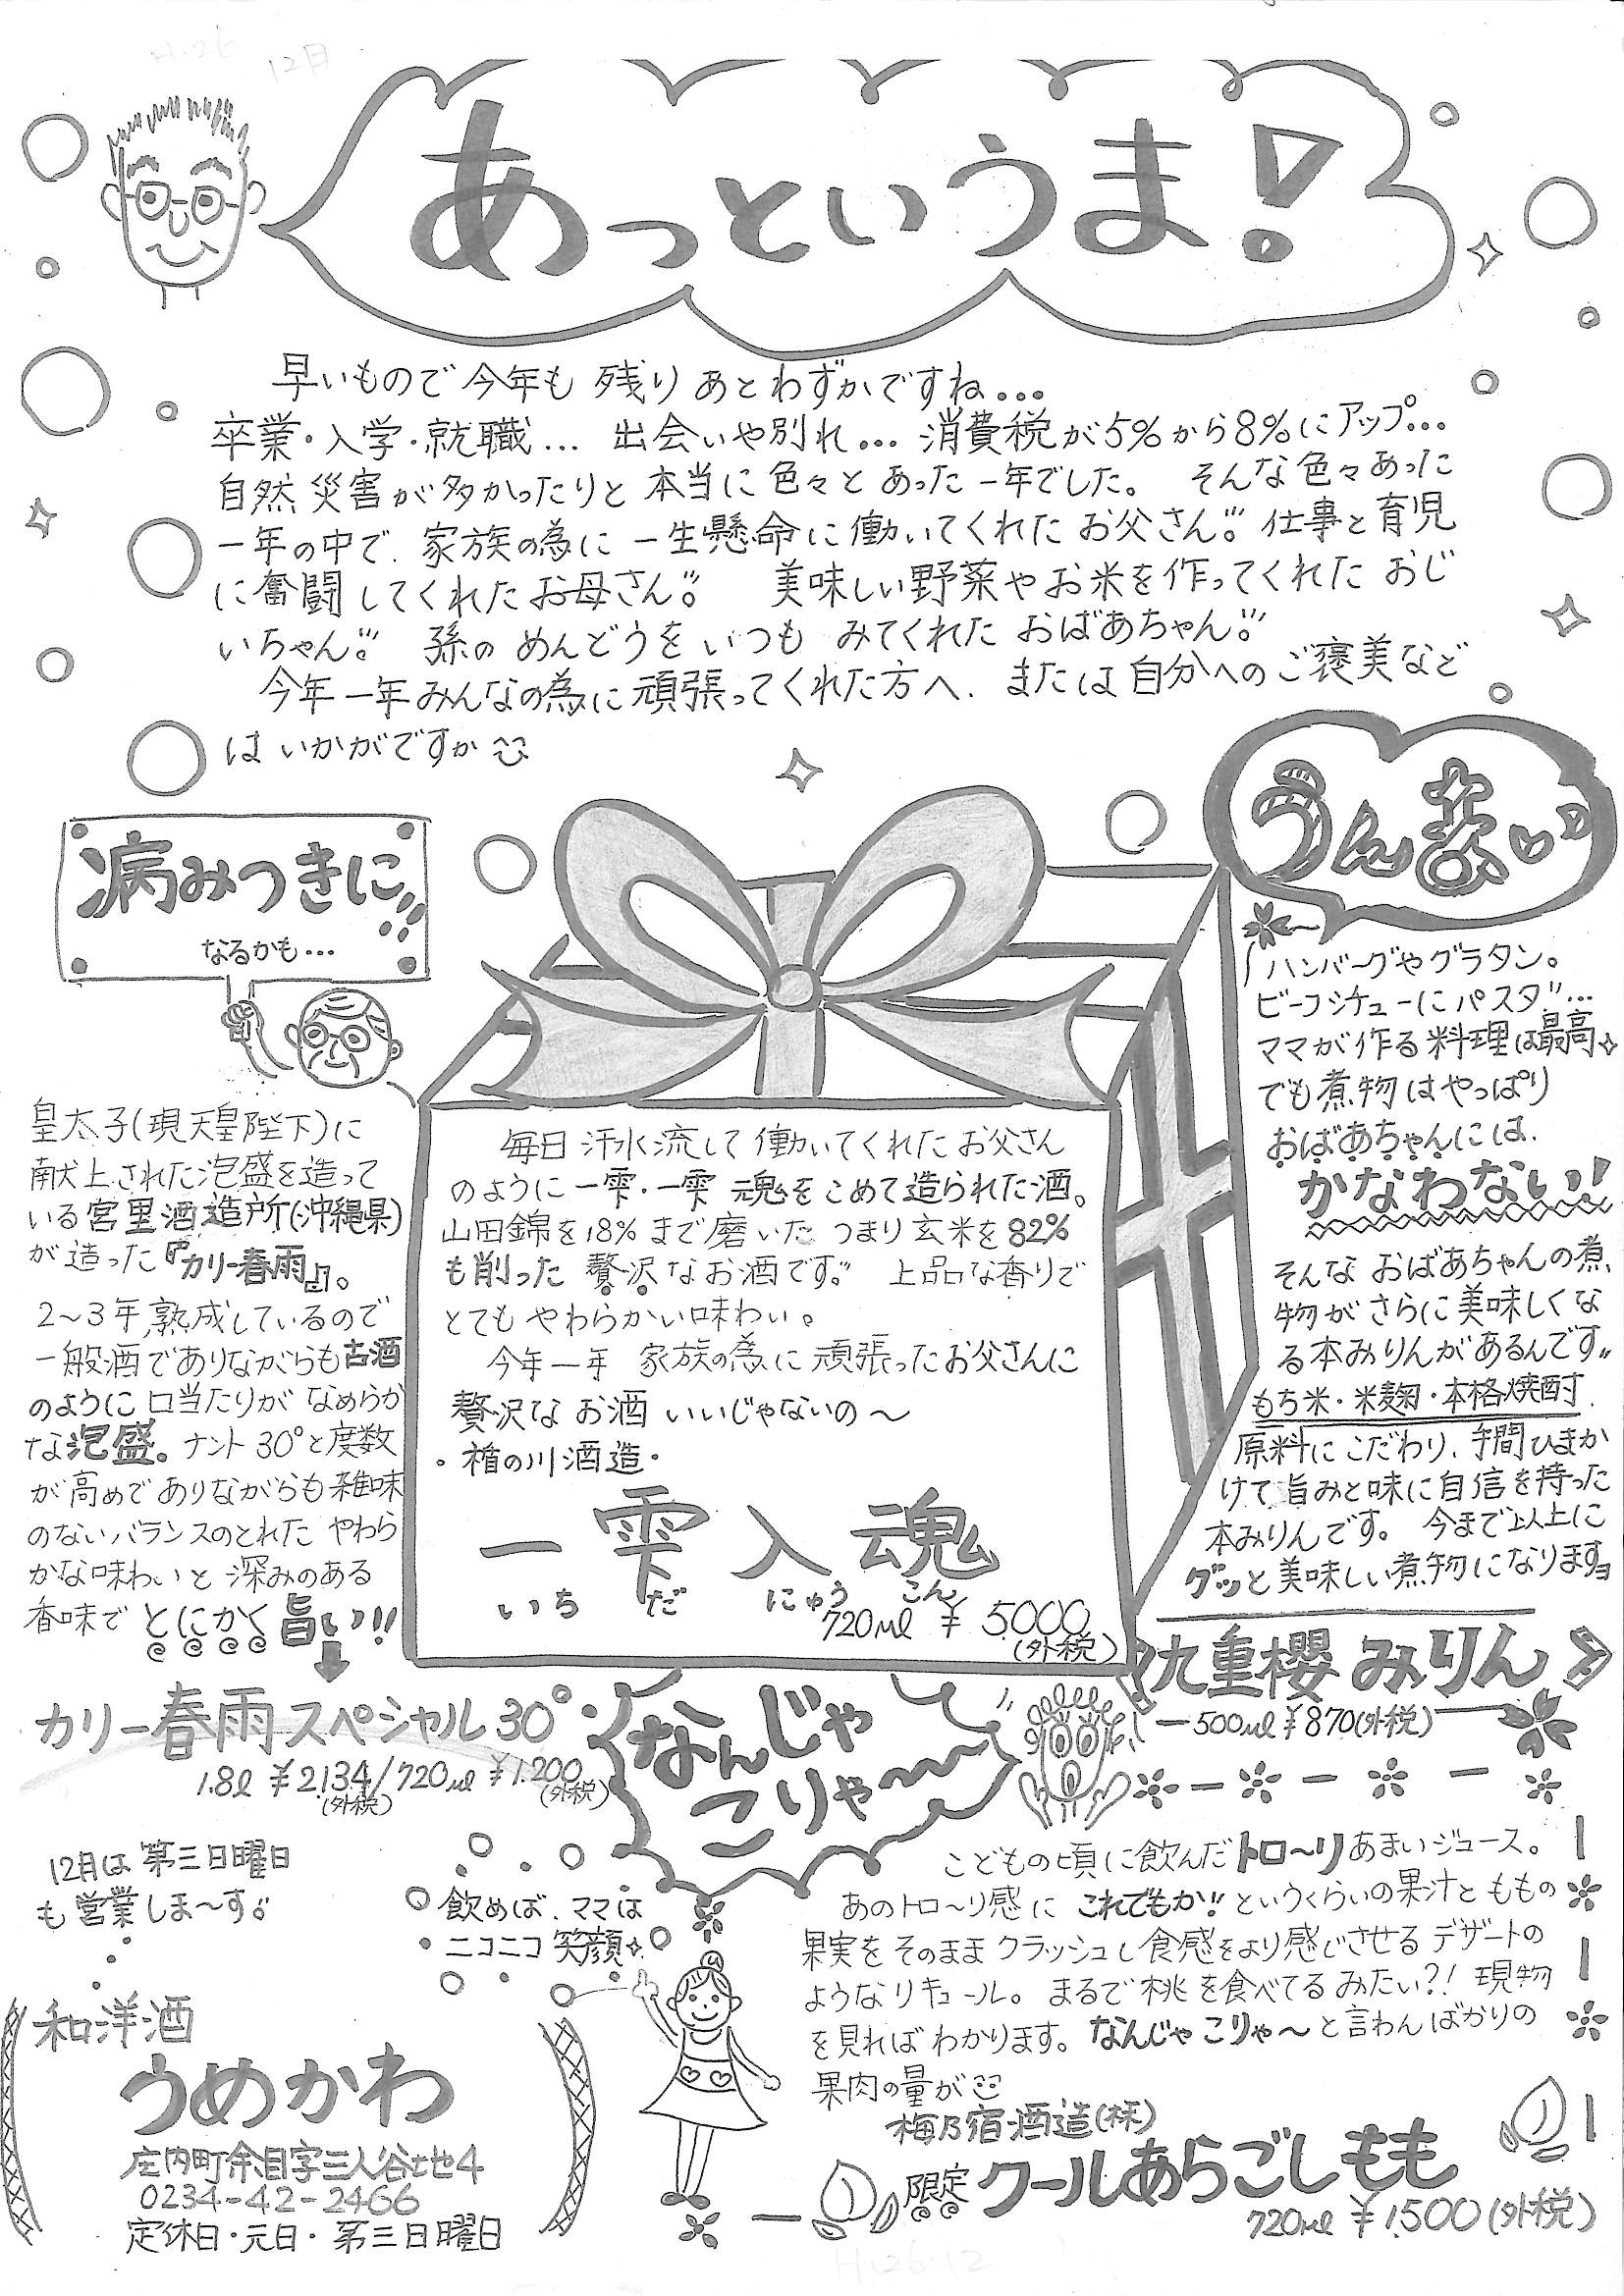 H.26 12月
あっというま!
早いもので今年も残りあとわずかですね...
卒業・入学・就職... 出会いや別れ... 消費税が5%から8%にアップ...
自然災害が多かったりと本当に色々とあった一年でした。 そんな色々あった
一年の中で、家族の為に一生懸命に働いてくれたお父さん!! 仕事と育児
に奮闘してくれたお母さん!! 美味しい野菜やお米を作ってくれたおじ
いちゃん!! 孫のめんどうをいつもみてくれたおばあちゃん!!
今年一年みんなの為に頑張ってくれた方へ、または自分へのご褒美など
はいかがですか
病みつきに!!
なるかも...
皇太子(現天皇陛下)に
献上された泡盛を造って
いる宮里酒造所(沖縄県)
が造った『カリー春雨』。
2〜3年熟成しているので
一般酒でありながらも古酒
のように口当たりがなめらか
な泡盛。ナント30°と度数
が高めでありながらも雑味
のないバランスのとれたやわら
かな味わいと深みのある
香味でとにかく旨い!!
カリー春雨スペシャル30°
1.8l ¥2.134/720ml ¥1.200
(外税) (外税)
毎日汗水流して働いてくれたお父さん
のように一雫・一雫 魂をこめて造られた酒。
山田錦を18%まで磨いた つまり玄米を82%
も削った 贅沢なお酒です!! 上品な香りで
とてもやわらかい味わい。
今年一年 家族の為に頑張ったお父さんに
贅沢なお酒いいじゃないの〜
・楯の川酒造・
一雫入魂
いち だ にゅう こん
720ml ¥5.000
(外税)
うん まい
ハンバーグやグラタン。
ビーフシチューにパスタ!!...
ママが作る料理は最高
でも煮物はやっぱり
おばあちゃんには、
かなわない!
そんなおばあちゃんの煮
物がさらに美味しくな
る本みりんがあるんです!!
もち米・米麹・本格焼酎
原料にこだわり、手間ひまか
けて旨みと味に自信を持った
本みりんです。 今まで以上に
グッと美味しい煮物になりますヨ
九重櫻みりん
ー500ml ¥870(外税)ー
なんじゃ
こりゃ〜〜
こどもの頃に飲んだトロ〜リあまいジュース。
あのトロ〜リ感にこれでもか!!というくらいの果汁とももの
果実をそのままクラッシュし食感をより感じさせるデザートの
ようなリキュール。 まるで桃を食べてるみたい?! 現物
を見ればわかります。なんじゃこりゃ〜と言わんばかりの
果肉の量が
梅乃宿酒造(株)
限定 クールあらごしもも
720ml ¥1.500(外税)
飲めば、ママは
ニコニコ笑顔
12月は第三日曜日
も営業しま〜す!!
和洋酒
うめかわ
庄内町余目字三人谷地4
0234-42-2466
定休日・元日・第三日曜日
H.26.12